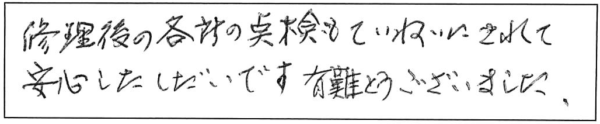 修理後の各所の点検もていねいにされて
安心したしだいです 有難とうございました、